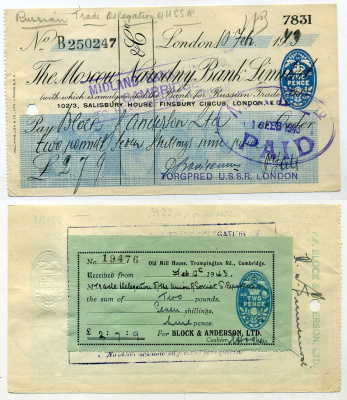 Russian Trade Delegation USSR
7831
No B 250247 London 10 Feb 1943
The Moscow Narodny Bank, Limited
(with which is amalgamated the Bank for Russian Trade
102/3, SALISBURY HOUSE, FINSBURY CIRCUS, LONDON, E.C.
MIDLAND
CAMBRIDGE
TWO PENCE
Pay Block & Anderson Ltd or Order
two pounds seven shillings nine pence
PAID
£ 2 7 9
TORGPRED U.S.S.R. LONDON
No. 19476
Old Mill House, Trumpington Rd., Cambridge.
Received from Feb 15th 1943.
Trade Delegation of the Union of Soviet S. Republics
the sum of Two pounds,
Seven shillings,
nine pence.
£ 2 - 7 - 9 For BLOCK & ANDERSON, LTD.
Cashier
TWO PENCE
BLOCK & ANDERSON, LTD.